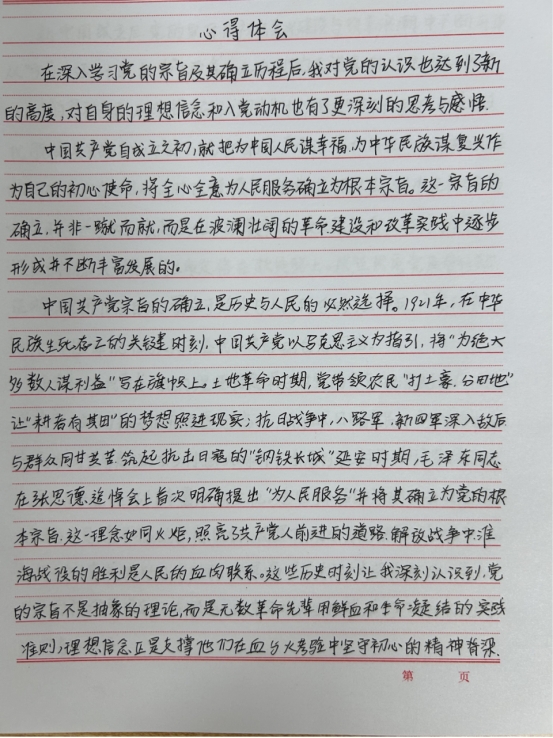 心得体会
在深入学习党的宗旨及其确立历程后,我对党的认识也达到了新
的高度,对自身的理想信念和入党动机也有了更深刻的思考与感悟.
中国共产党自成立之初,就把为中国人民谋幸福,为中华民族谋复兴作
为自己的初心使命,将全心全意为人民服务确立为根本宗旨。这一宗旨的
确立,并非一蹴而就,而是在波澜壮阔的革命建设和改革实践中逐步
形成并不断丰富发展的。
中国共产党宗旨的确立,是历史与人民的必然选择。1921年,在中华
民族生死存亡的关键时刻,中国共产党以马克思主义为指引,将“为绝大
多数人谋利益”写在旗帜上。土地革命时期,党带领农民“打土豪、分田地”
让“耕者有其田”的梦想照进现实;抗日战争中,八路军,新四军深入敌后
与群众同甘共苦,筑起抗击日寇的“钢铁长城”延安时期,毛泽东同志
在张思德追悼会上首次明确提出“为人民服务”并将其确立为党的根
本宗旨.这一理念如同火炬,照亮了共产党人前进的道路.解放战争中,淮
海战役的胜利是人民的血肉联系。这些历史时刻让我深刻认识到,党
的宗旨不是抽象的理论,而是无数革命先辈用鲜血和生命凝结的实践
准则,理想信念正是支撑他们在血与火考验中坚守初心的精神脊梁.
第 页